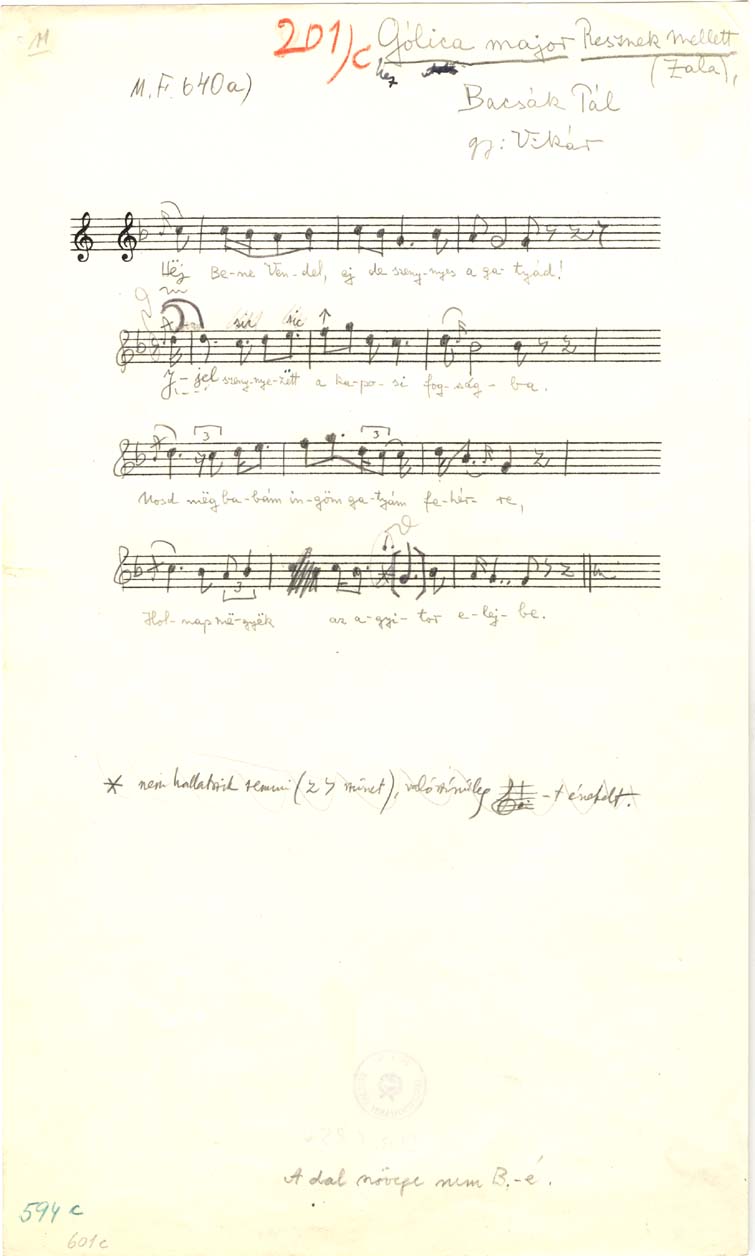 M
201/c Gólica major Resznek mellett
hez
(Zala),
M.F. 640a)
Bacsák Pál
gy: Vikár
Héj Be-ne Ven-del, ej de szeny-nyes a ga-tyád!
sic sic
Ij-jel szeny-nye-zëtt a ka-po-si fog-ság-ba.
3 3
Mosd mëg ba-bám in-göm ga-tyám fe-hér-re,
3
Hol-nap më-gyëk az a-gyi-tor e-lej-be.
* nem hallatszik semmi ( szünet), valószinüleg -t énekelt.
A dal szövege nem B.-é.
594 c
601c